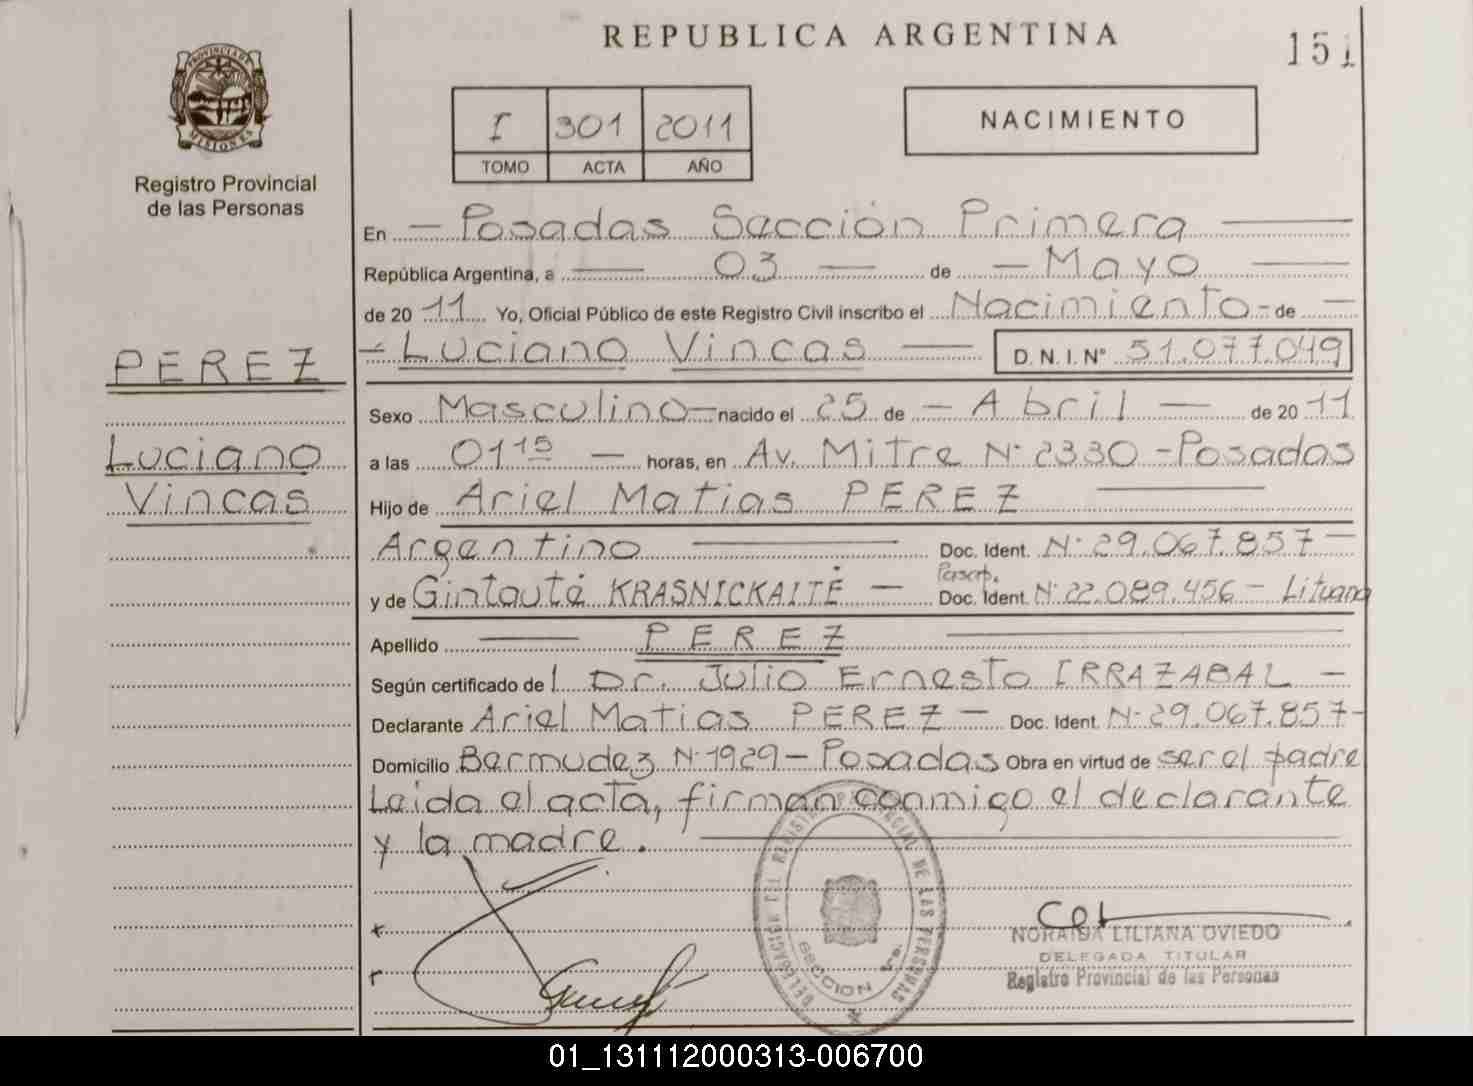 REPUBLICA ARGENTINA
151
PROVINCIA DE MISIONES
Registro Provincial
de las Personas
I 301 2011
TOMO ACTA AÑO
NACIMIENTO
En - Posadas Sección Primera
República Argentina, a 03 de - Mayo
de 2011 Yo, Oficial Público de este Registro Civil inscribo el Nacimiento - de -
- Luciano Vincas D. N. I. Nº 51.077.049
PEREZ
Luciano
Vincas
Sexo Masculino - nacido el 25 de - Abril - de 2011
a las 01 15 - horas, en Av. Mitre Nº 2330 - Posadas
Hijo de Ariel Matias PEREZ
Argentino Doc. Ident. Nº 29.067.857 -
y de Gintauté KRASNICKAITÉ - Pasap. Doc. Ident. Nº 22.089.456 - Lituana
Apellido PEREZ
Según certificado del Dr. Julio Ernesto IRRAZABAL -
Declarante Ariel Matias PEREZ - Doc. Ident. Nº 29.067.857 -
Domicilio Bermudez Nº 1929 - Posadas Obra en virtud de ser el padre
Leida el acta, firman conmigo el declarante
y la madre.
DELEGACION DEL REGISTRO PROVINCIAL DE LAS PERSONAS
SECCION 1ra.
NORAIDA LILIANA OVIEDO
DELEGADA TITULAR
Registro Provincial de las Personas
01_131112000313-006700